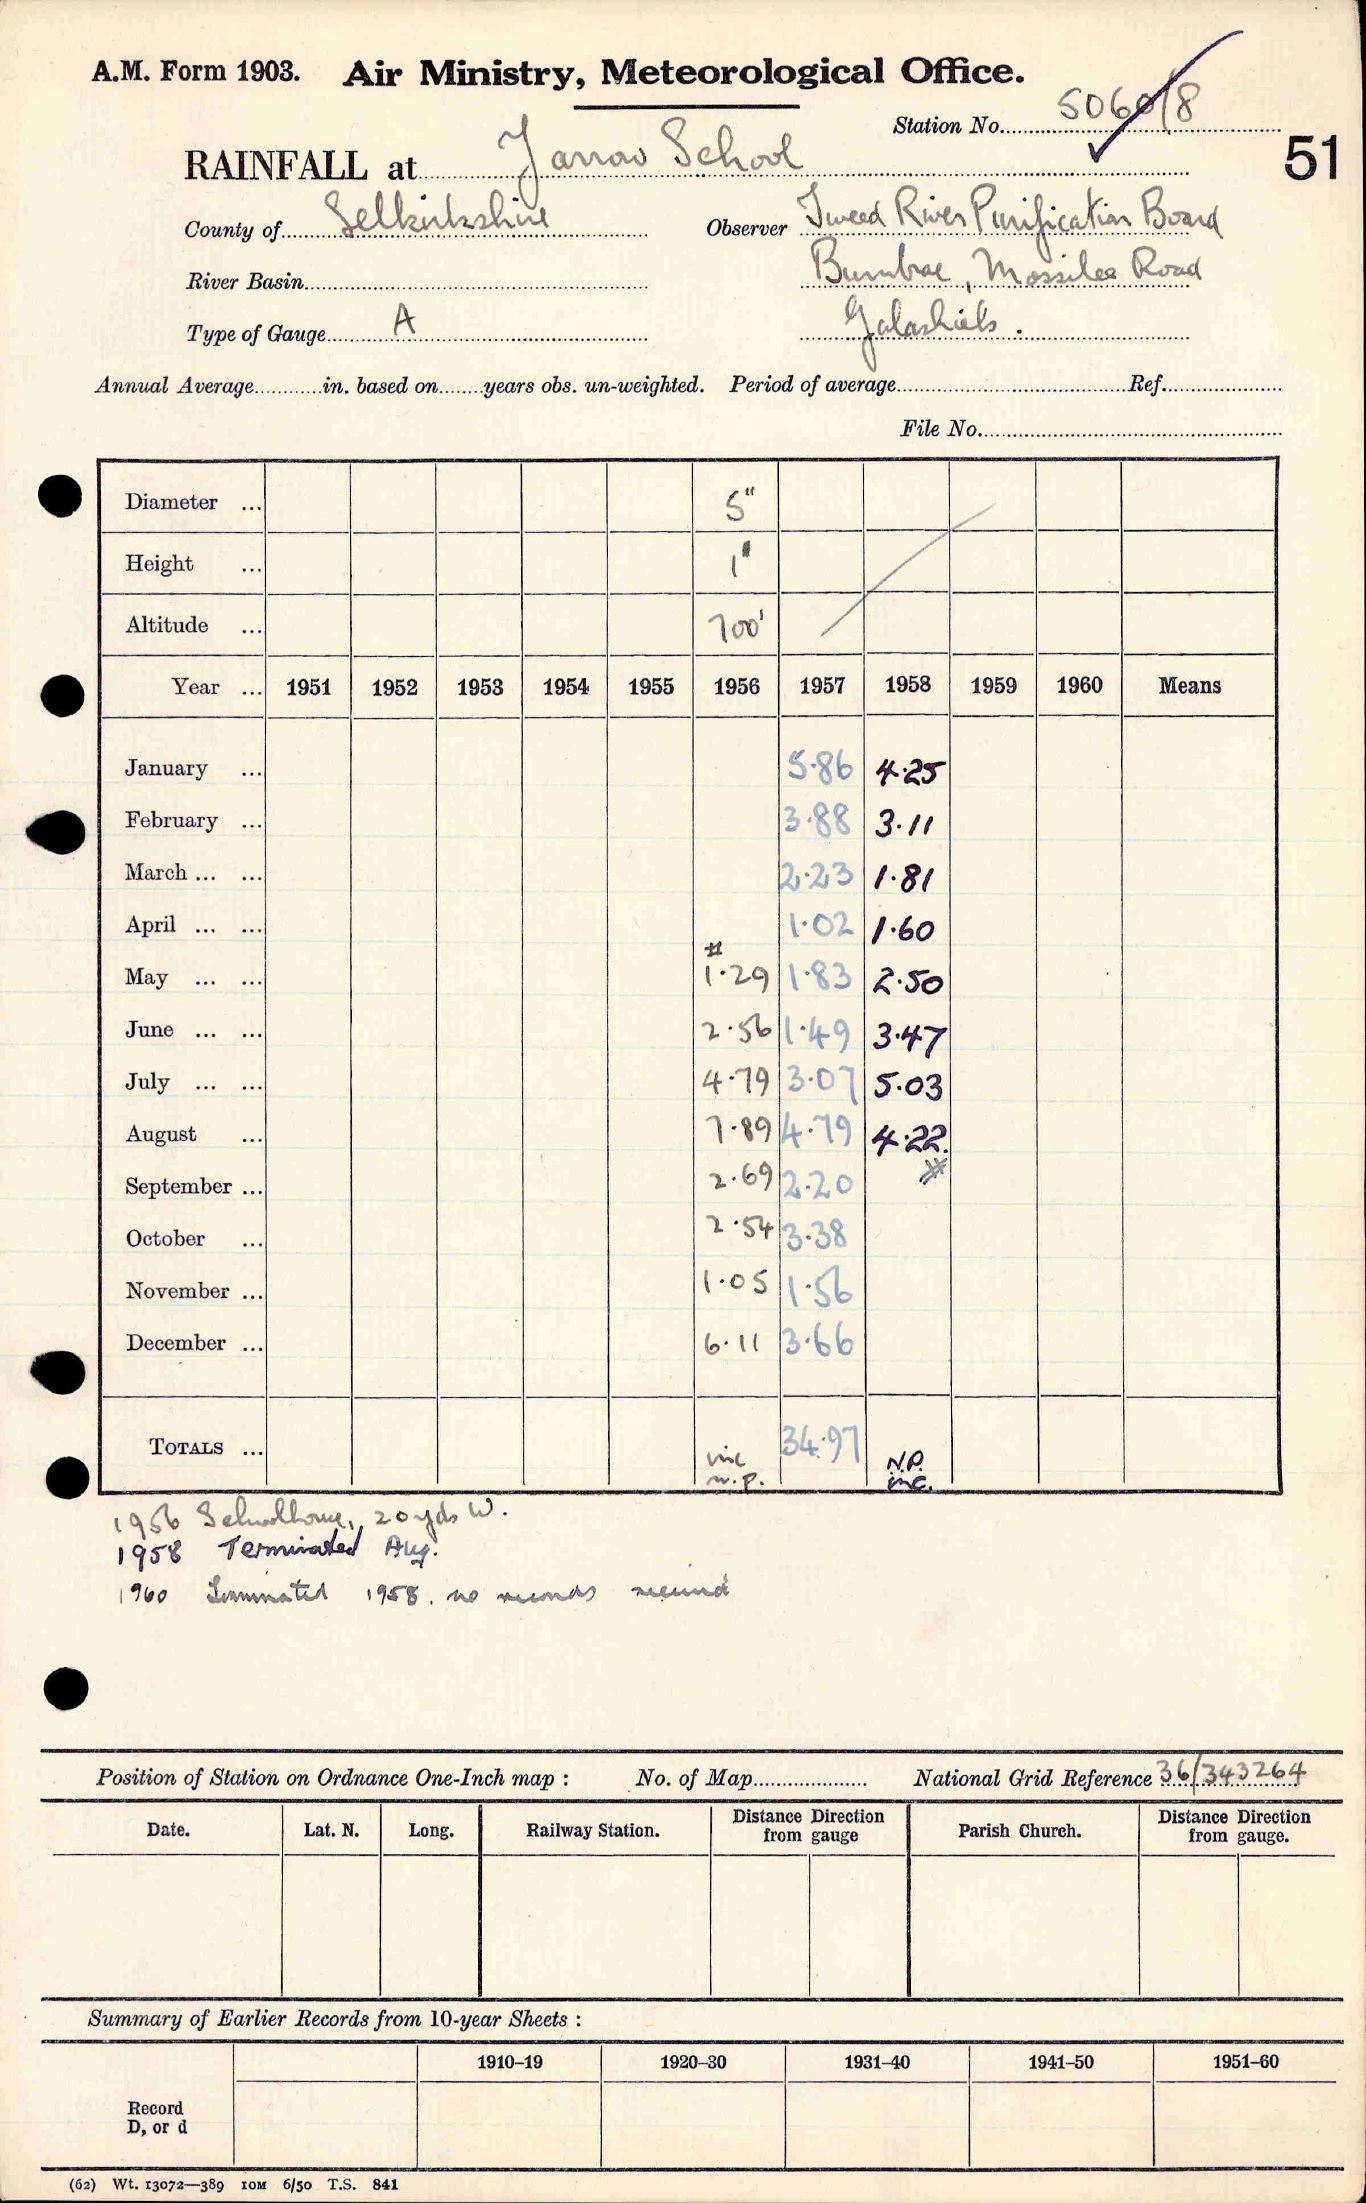 A.M. Form 1903. Air Ministry, Meteorological Office.
Station No. 5060/8
51
RAINFALL at Yarrow School
County of Selkirkshire Observer Tweed River Purification Board
River Basin Burnbrae, Mossilee Road
Type of Gauge A Galashiels.
Annual Average in. based on years obs. un-weighted. Period of average Ref.
File No.
Diameter ... 5"
Height ... 1"
Altitude ... 700'
Year ... 1951 1952 1953 1954 1955 1956 1957 1958 1959 1960 Means
January ... 5.86 4.25
February ... 3.88 3.11
March ... ... 2.23 1.81
April ... ... 1.02 1.60
#
May ... ... 1.29 1.83 2.50
June ... ... 2.56 1.49 3.47
July ... ... 4.79 3.07 5.03
August ... 7.89 4.79 4.22
#
September ... 2.69 2.20
October ... 2.54 3.38
November ... 1.05 1.56
December ... 6.11 3.66
TOTALS ... 34.97
inc N.P.
n.p. inc.
1956 Schoolhouse, 20 yds W.
1958 Terminated Aug.
1960 Terminated 1958. no records received
Position of Station on Ordnance One-Inch map : No. of Map National Grid Reference 36/343264
Date. Lat. N. Long. Railway Station. Distance Direction from gauge Parish Church. Distance Direction from gauge.
Summary of Earlier Records from 10-year Sheets :
1910–19 1920–30 1931–40 1941–50 1951–60
Record
D, or d
(62) Wt. 13072—389 10M 6/50 T.S. 841